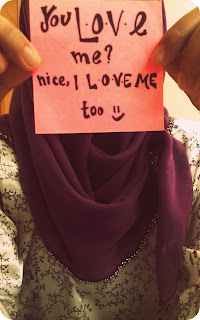 You L.O.V.e
me?
nice, I L.O.V.E ME
too :)